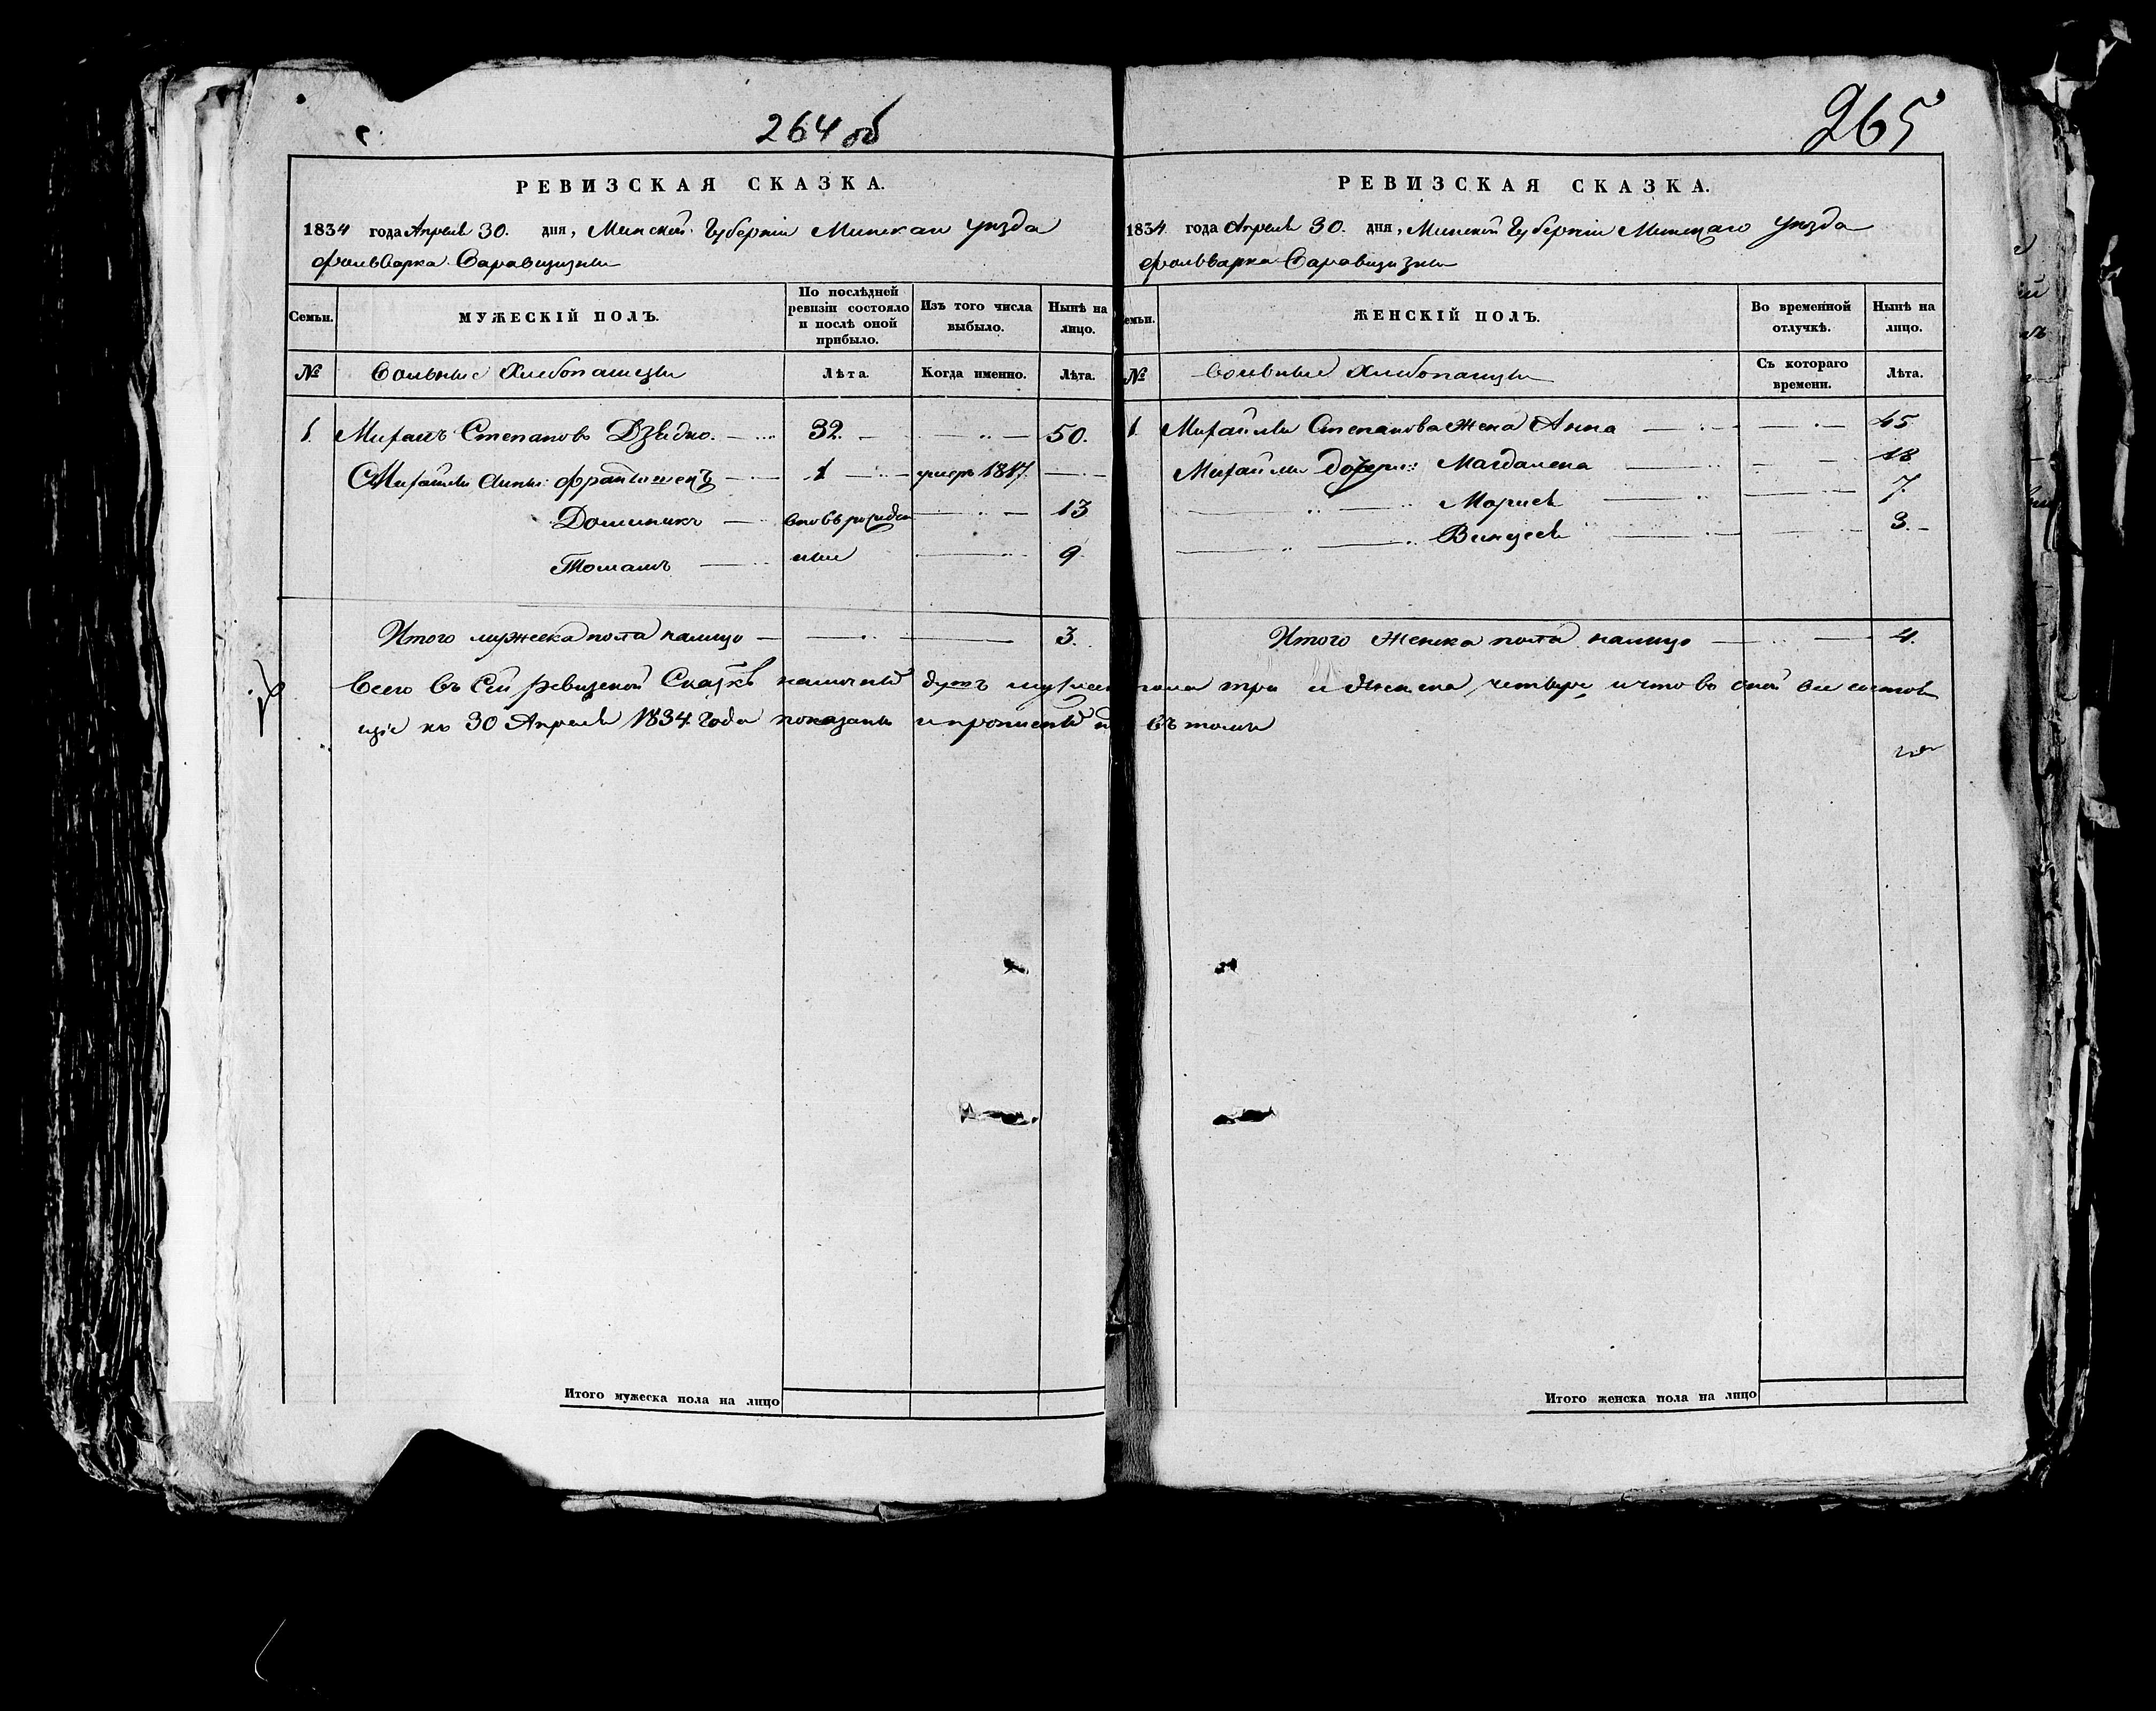 264 об
РЕВИЗСКАЯ СКАЗКА.
1834 года Апреля 30. дня, Минской Губерніи Минскаго уезда
фольварка
Семьи.
МУЖЕСКІЙ ПОЛЪ.
По послѣдней ревизіи состояло и послѣ оной прибыло.
Изъ того числа выбыло.
Нынѣ на лицо.
№ Вольные Хлебопашцы Лѣта. Когда именно. Лѣта.
1. Михаилъ Степановъ Дзѣдко. 32. 50.
Михайлы сыны: Францишекъ 1 умеръ 1817.
Доминикъ вновь рожде 13
Томашъ ные 9
Итого мужеска пола налицо 3.
265
РЕВИЗСКАЯ СКАЗКА.
1834 года Апреля 30. дня, Минской Губерніи Минскаго Уезда
фольварка
емьи.
ЖЕНСКІЙ ПОЛЪ.
Во временной отлучкѣ.
Нынѣ на лицо.
№ Вольные Хлебопашцы Съ котораго времени. Лѣта.
1. Михайлы Степанова жена Анна 45
Михайлы дочери: Магдалена 18
Марiя 7.
Винцеся 3.
Итого женска пола налицо 4.
Всего въ сей ревизской Сказкѣ наличныхъ душъ мужеск пола три и женска четыре и что въ оной все состоя
щiе къ 30 Апреля 1834 года показаны и прописныхъ въ томъ
Итого мужеска пола на лицо
Итого женска пола на лицо